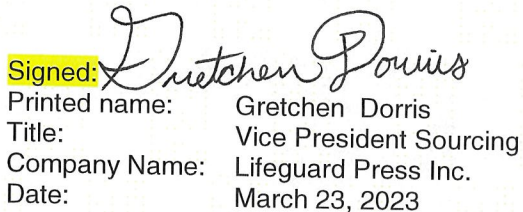 Signed: Gretchen Dorris
Printed name: Gretchen Dorris
Title: Vice President Sourcing
Company Name: Lifeguard Press Inc.
Date: March 23, 2023